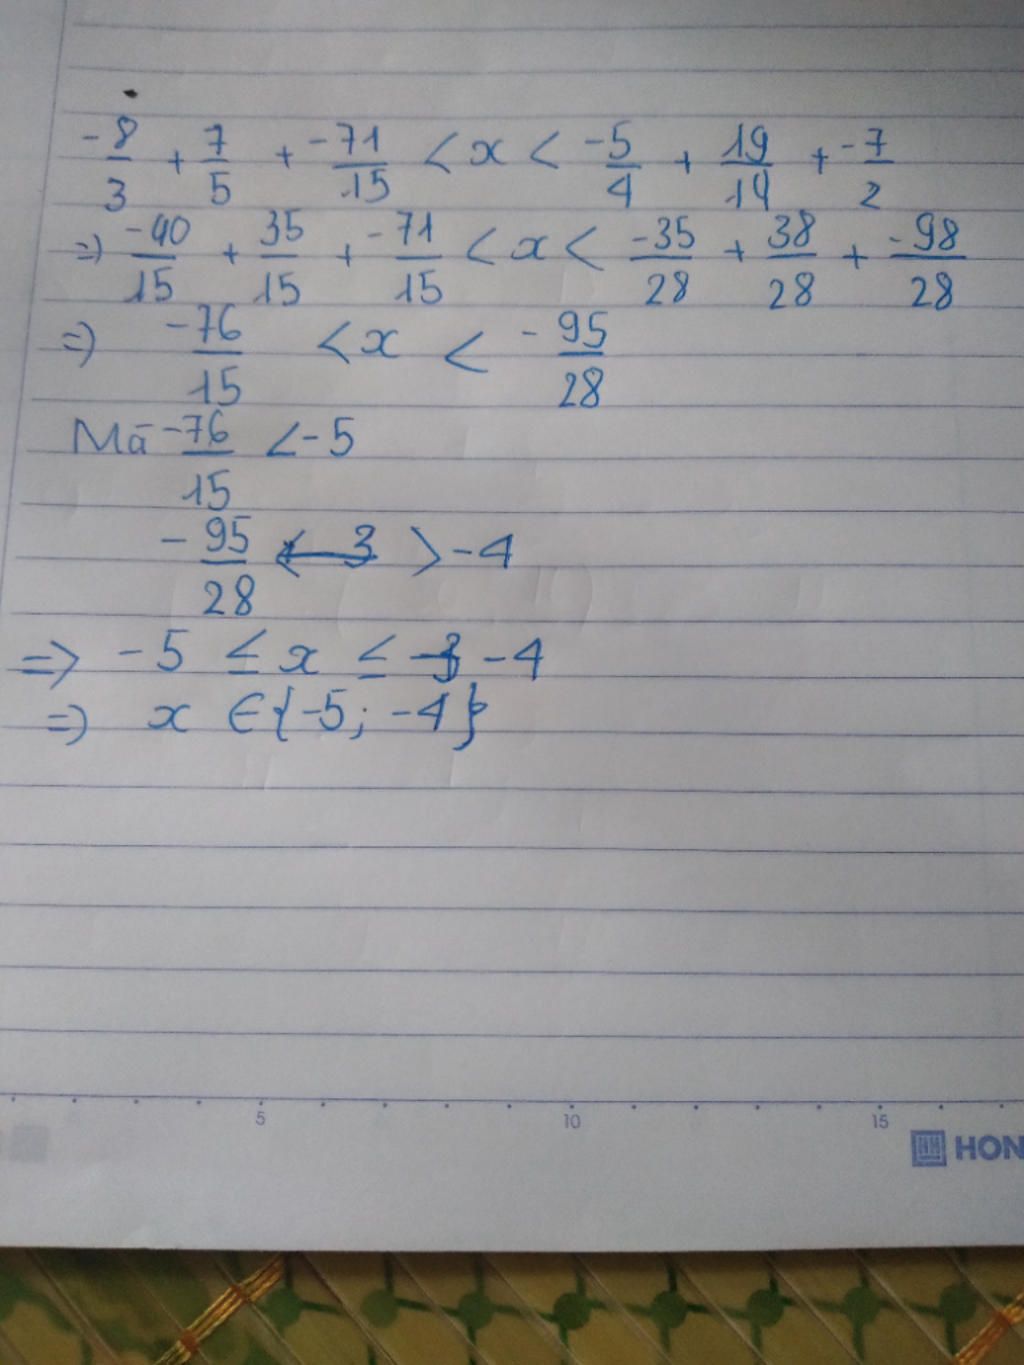 -8/3 + 7/5 + -71/15 < x < -5/4 + 19/14 + -7/2
=> -40/15 + 35/15 + -71/15 < x < -35/28 + 38/28 + -98/28
=> -76/15 < x < -95/28
Mà -76/15 < -5
-95/28 > -4
=> -5 ≤ x ≤ -4
=> x ∈ {-5; -4}
5 10 15
HON